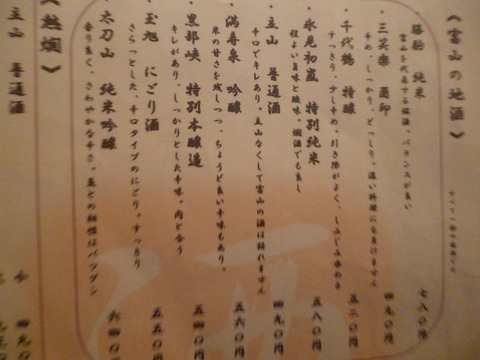 《富山の地酒》
勝駒　純米
富山を代表する地酒。バランスが良い
七八〇円
・三笑楽　
辛め、しっかり、どっしり。濃い料理にも負けません
四九〇円
・千代鶴　特醸
すっきり、少し辛め。引き際がよく、しみじみ染める
五三〇円
・氷見初嵐　特別純米
程よい旨味と酸味。燗酒でも良し
五八〇円
・立山　普通酒
辛口でキレあり。立山なくして富山の酒は語れません
四九〇円
・満寿泉　吟醸
米の甘さを残しつつ、ちょうど良い辛味もあり。
五六〇円
・黒部峡　特別本醸造
キレがあり、しっかりとした辛味。肉と合う
五五〇円
・玉旭　にごり酒
さらっとした、辛口タイプのにごり。すっきり
五五〇円
・太刀山　純米吟醸
香り良く、さわやかな辛さ。魚との相性はバツグン
六四〇円
《熱燗》
立山　普通酒